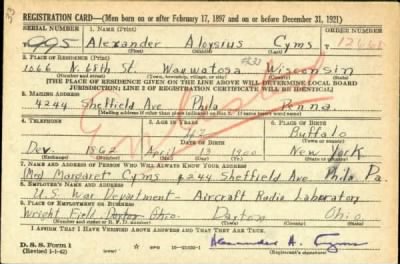 33
REGISTRATION CARD—(Men born on or after February 17, 1897 and on or before December 31, 1921)
SERIAL NUMBER 1. NAME (Print) ORDER NUMBER
995 Alexander Aloysius Cyms
(First) (Middle) (Last)
2. PLACE OF RESIDENCE (Print)
1066 N. 68th St. Wauwatosa Wisconsin
(Number and street) (Town, township, village, or city) (County) (State)
[THE PLACE OF RESIDENCE GIVEN ON THE LINE ABOVE WILL DETERMINE LOCAL BOARD
JURISDICTION; LINE 2 OF REGISTRATION CERTIFICATE WILL BE IDENTICAL]
3. MAILING ADDRESS
4244 Sheffield Ave Phila Penna
[Mailing address if other than place indicated on line 2. If same insert word same]
4. TELEPHONE 5. AGE IN YEARS 6. PLACE OF BIRTH
42 Buffalo
DATE OF BIRTH (Town or county)
Dev. 1862 April 13 1900 New York
(Exchange) (Number) (Mo.) (Day) (Yr.) (State or country)
7. NAME AND ADDRESS OF PERSON WHO WILL ALWAYS KNOW YOUR ADDRESS
Mrs Margaret Cyms 4244 Sheffield Ave Phila. Pa.
8. EMPLOYER'S NAME AND ADDRESS
U.S. War Department - Aircraft Radio Laboraton
9. PLACE OF EMPLOYMENT OR BUSINESS
Wright Field Ohio. Dayton Ohio.
(Number and street or R. F. D. number) (Town) (County) (State)
I AFFIRM THAT I HAVE VERIFIED ABOVE ANSWERS AND THAT THEY ARE TRUE.
D. S. S. Form 1
(Revised 4-1-42) (over) GPO 16—21630-1 Alexander A. Cyms